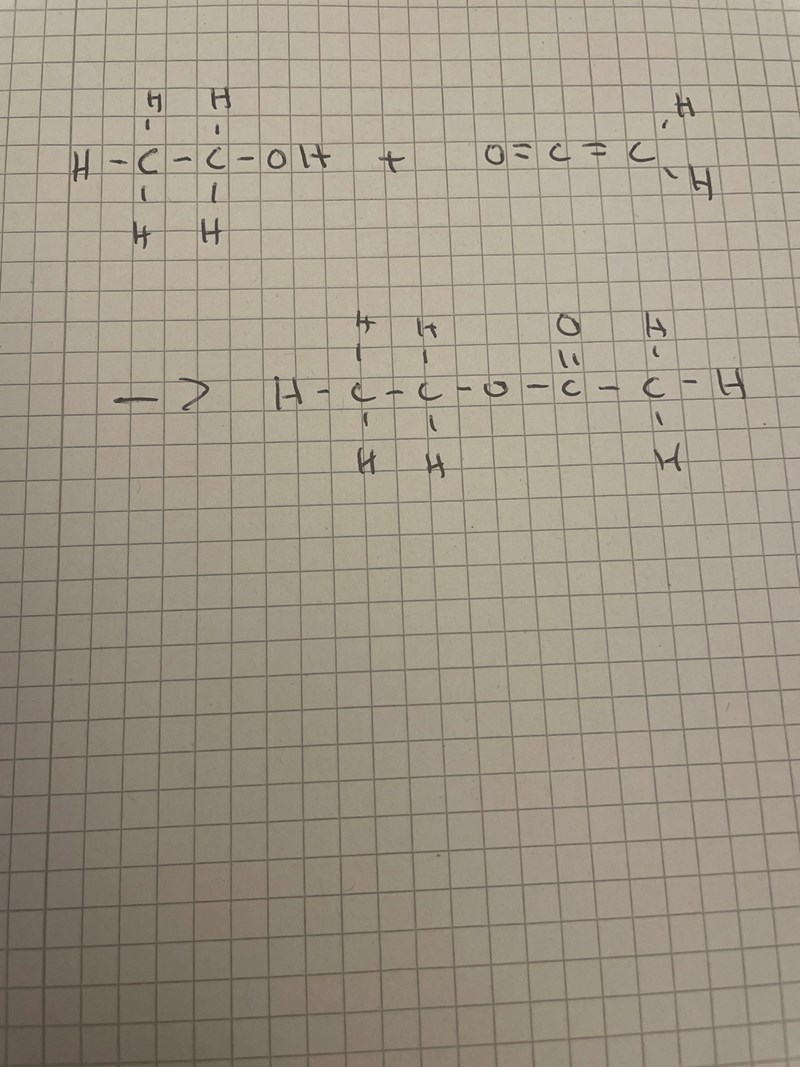 H H
H - C - C - OH + O = C = C H
H H H
H H O H
-> H - C - C - O - C - C - H
H H H